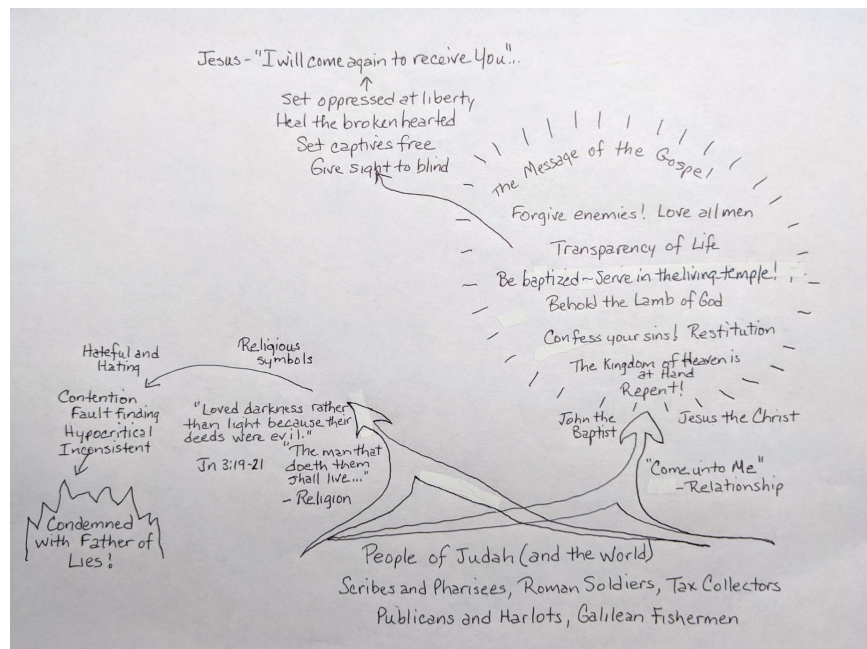 Jesus - "I will come again to receive You"...
Set oppressed at liberty
Heal the broken hearted
Set captives free
Give sight to blind
The Message of the Gospel
Forgive enemies! Love all men
Transparency of Life
Be baptized ~ Serve in the living temple!
Behold the Lamb of God
Confess your sins! Restitution
The Kingdom of Heaven is
at Hand
Repent!
John the
Baptist
Jesus the Christ
"Come unto Me"
- Relationship
Religious
symbols
Hateful and
Hating
Contention
Fault finding
Hypocritical
Inconsistent
"Loved darkness rather
than light because their
deeds were evil."
Jn 3:19-21
"The man that
doeth them
shall live..."
- Religion
Condemned
with Father of
Lies!
People of Judah (and the World)
Scribes and Pharisees, Roman Soldiers, Tax Collectors
Publicans and Harlots, Galilean Fishermen